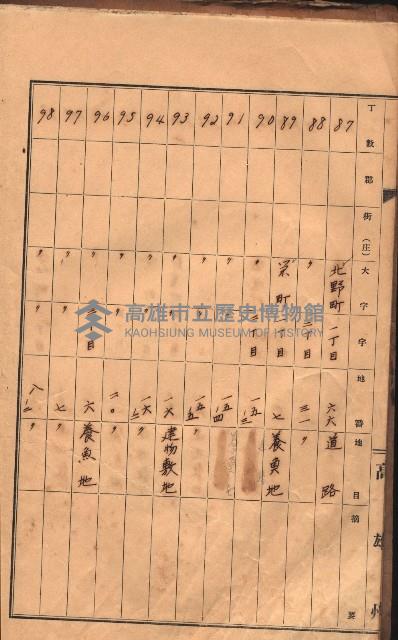 丁數 郡 街(庄) 大字 字 地番 地目 摘要
87 北野町 一丁目 六六 道路
88 〃 二丁目 三一 〃
89 栄町 一丁目 七 養魚地
90 〃 二丁目 一五ノ三
91 〃 〃 一五ノ四
92 〃 〃 一五ノ五 〃
93 〃 〃 一六 建物敷地
94 〃 〃 一六ノ二 〃
95 〃 〃 二〇 〃
96 〃 三丁目 六 養魚地
97 〃 〃 七 〃
98 〃 〃 八ノ二 〃
高雄州
高雄市立歷史博物館
KAOHSIUNG MUSEUM OF HISTORY